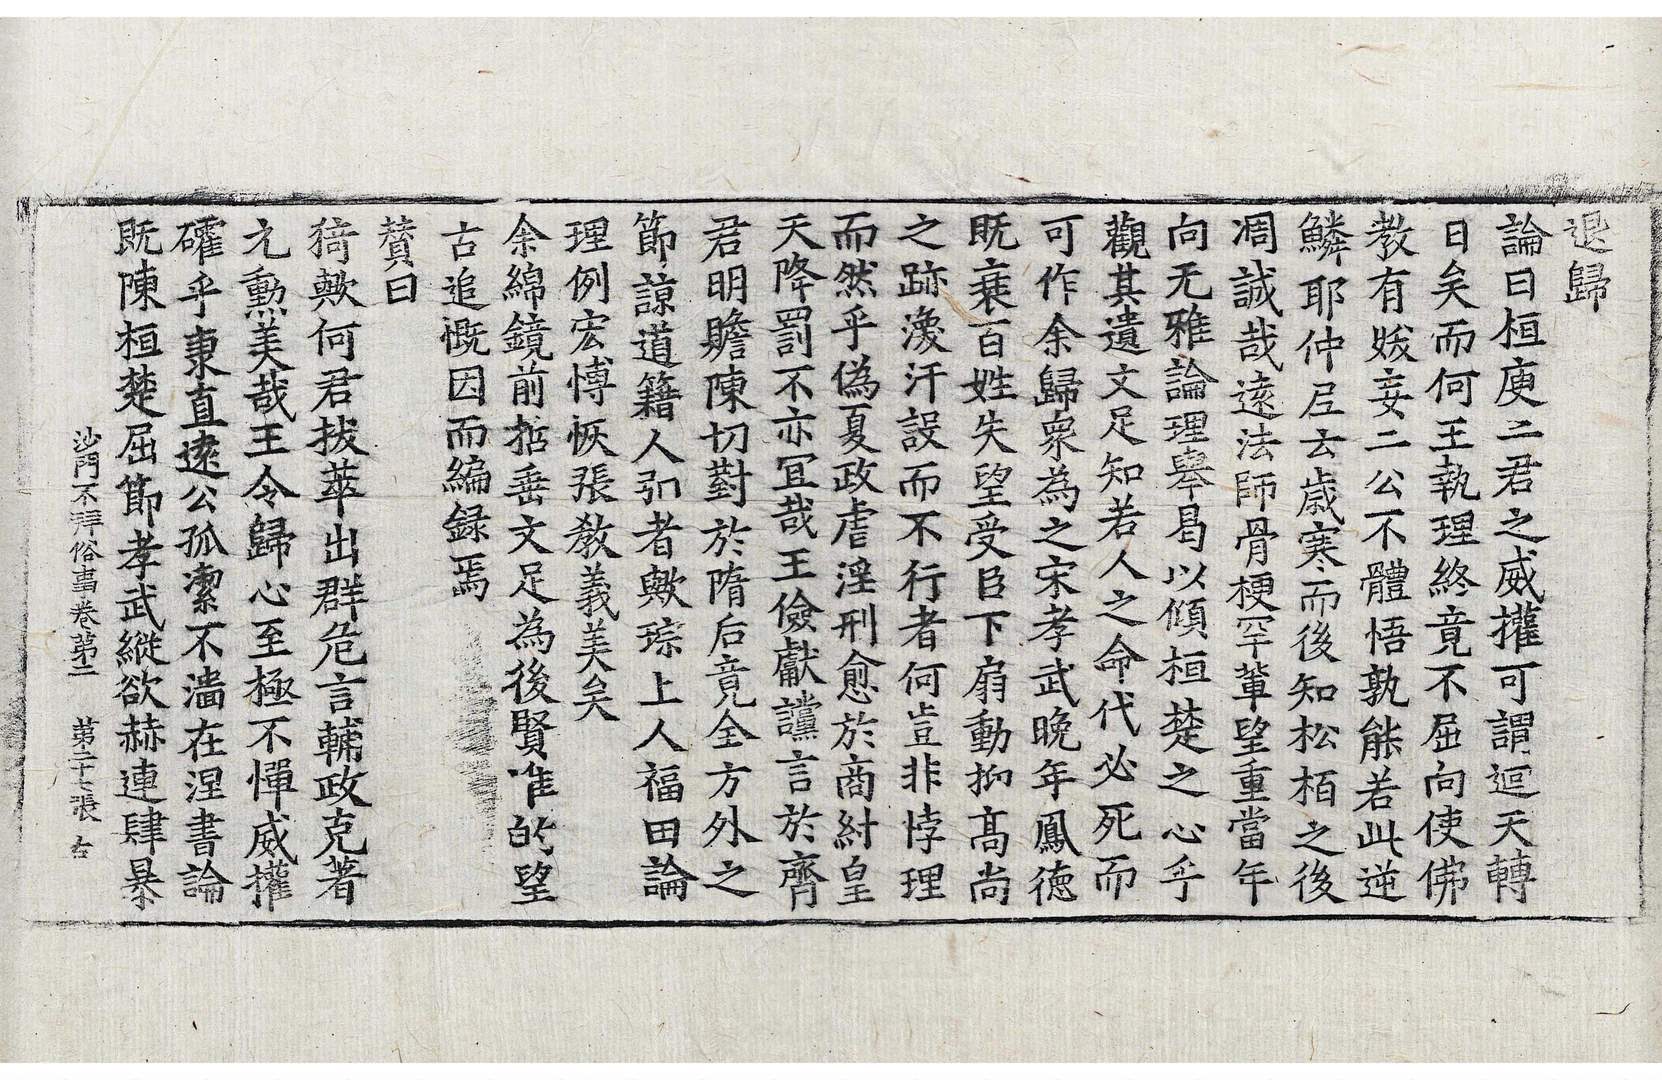 退歸
論曰桓庾二君之威權可謂迴天轉
日矣而何王執理終竟不屈向使佛
教有妭妄二公不體悟孰能若此逆
鱗耶仲尼云歲寒而後知松栢之後
凋誠哉遠法師骨梗罕輩望重當年
向无雅論理舉曷以傾桓楚之心乎
觀其遺文足知若人之命代必死而
可作余歸衆為之宋孝武晚年鳳德
既衰百姓失望受臣下扇動抑髙尚
之跡渙汗設而不行者何豈非悖理
而然乎偽夏政虐淫刑愈於商紂皇
天降罰不亦冝哉王儉獻讜言於齊
君明贍陳切對於隋后竟全方外之
節諒道籍人弘者歟琮上人福田論
理例宏博恢張敎義美矣
余綿鏡前哲垂文足為後賢准的望
古追慨因而編録焉
賛曰
猗歟何君拔萃出群危言輔政克著
元勳美哉王令歸心至極不憚威權
確乎秉直遠公孤潔不淄在涅書論
既陳桓楚屈節孝武縱欲赫連肆暴
沙門不拜俗事卷第二 第二十七張 右